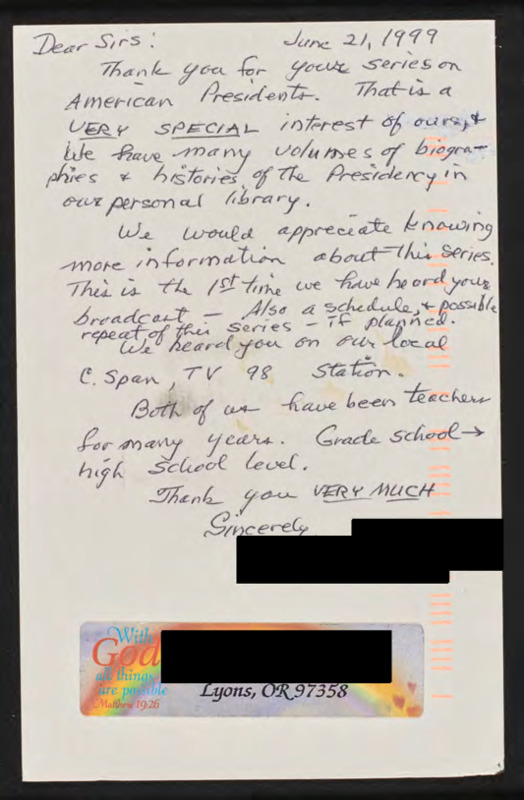 Dear Sirs: June 21, 1999
Thank you for your series on
American Presidents. That is a
VERY SPECIAL interest of ours, &
We have many volumes of biogra-
phies & histories of the Presidency in
our personal library.
We would appreciate knowing
more information about this series.
This is the 1st time we have heard your
broadcast – Also a schedule, & possible
repeat of this series – if planned.
We heard you on our local
C. Span, TV 98 Station.
Both of us have been teachers
for many years. Grade school →
high school level.
Thank you VERY MUCH
Sincerely
With
God
all things
are possible
Matthew 19:26
Lyons, OR 97358